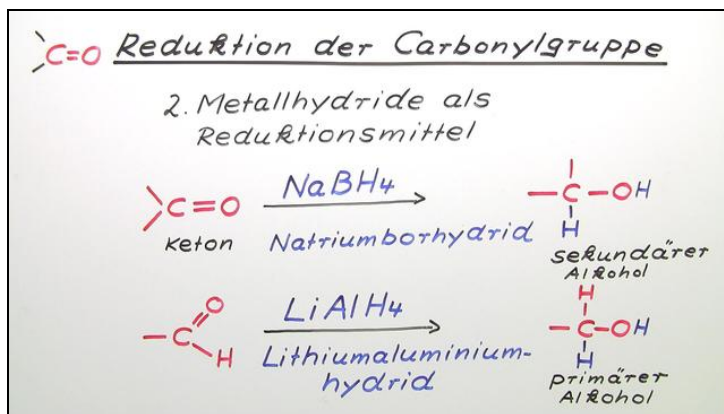 C=O Reduktion der Carbonylgruppe
2. Metallhydride als
Reduktionsmittel
C=O NaBH4 C-OH
H
Keton Natriumborhydrid sekundärer
Alkohol
O H
C LiAlH4 C-OH
H Lithiumaluminium- H
hydrid primärer
Alkohol